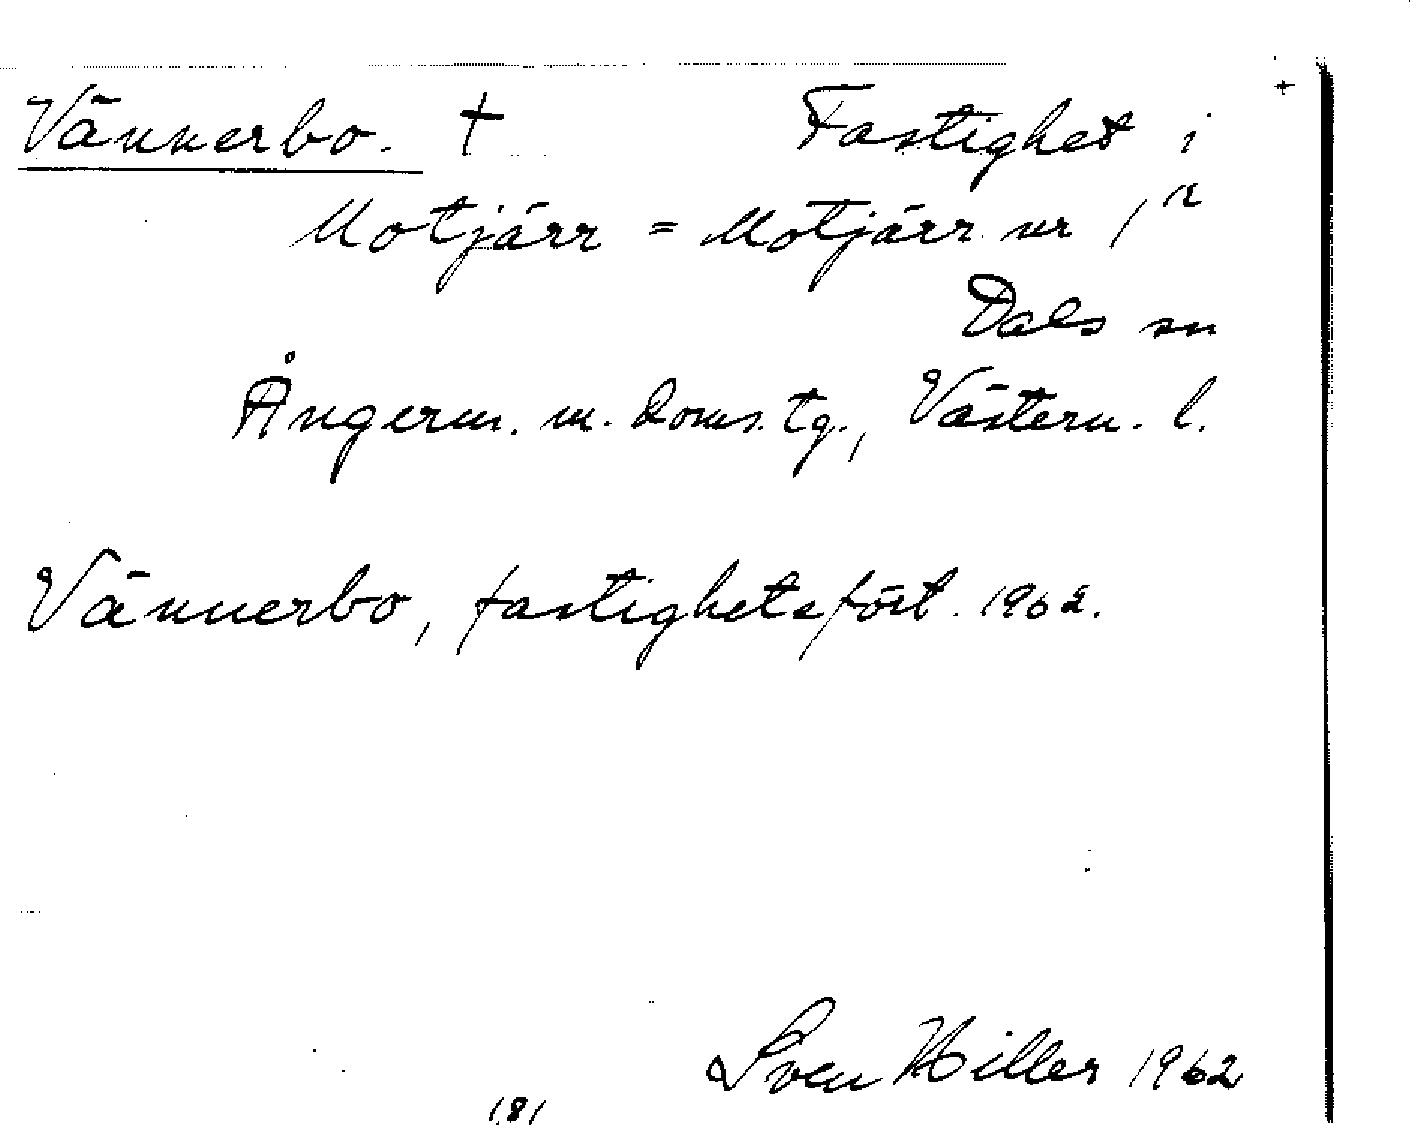 Vännerbo. † Fastighet i
Motjärr = Motjärr nr 1¹²
Dals sn
Ångerm. m. doms. tg., Västern. l.
Vännerbo, fastighetsfört. 1962.
Sven Hiller 1962
181